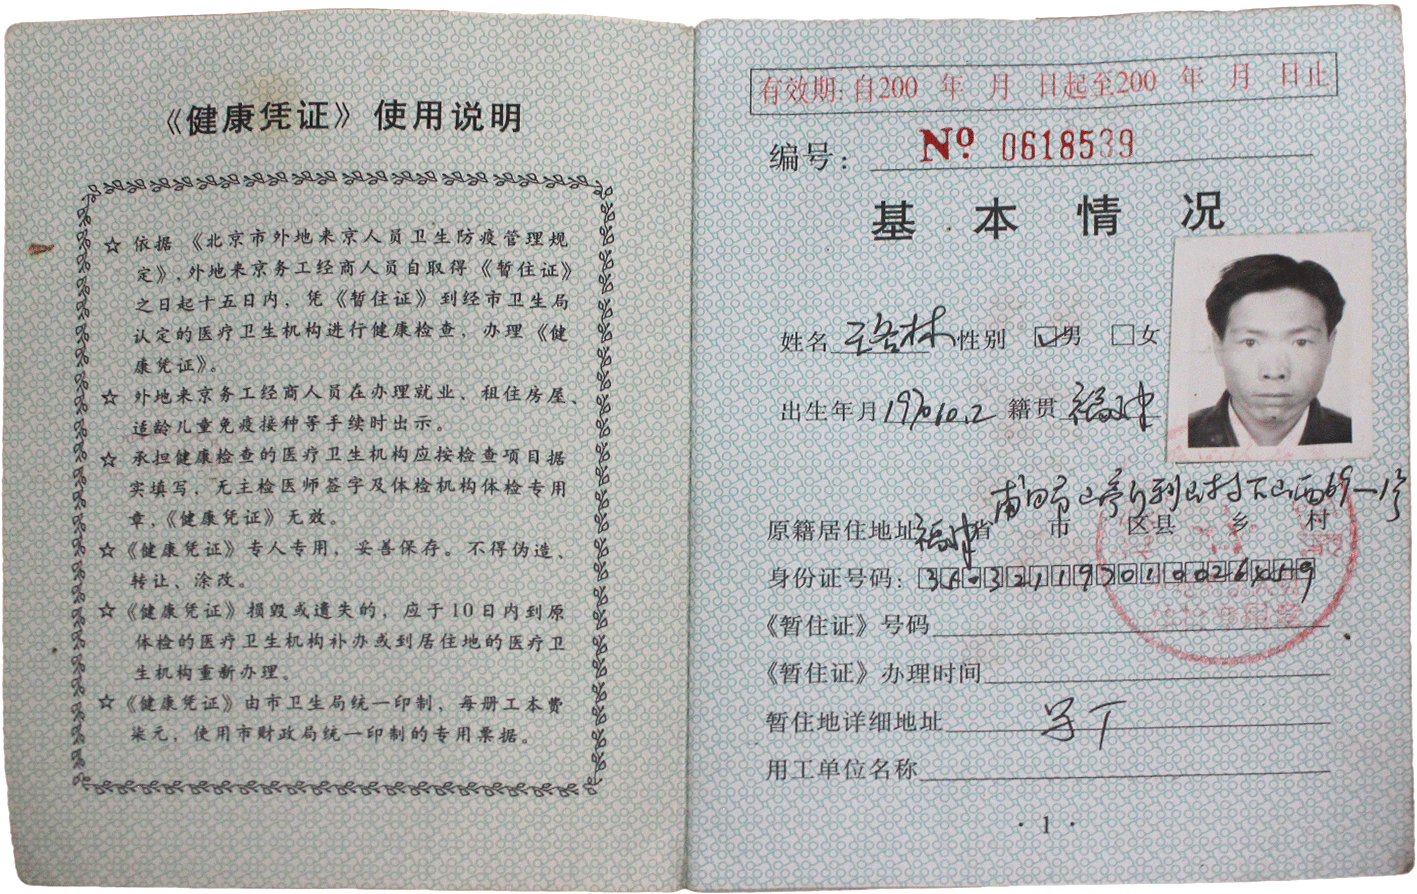 《健康凭证》使用说明
☆ 依据《北京市外地来京人员卫生防疫管理规
定》,外地来京务工经商人员自取得《暂住证》
之日起十五日内，凭《暂住证》到经市卫生局
认定的医疗卫生机构进行健康检查，办理《健
康凭证》。
☆ 外地来京务工经商人员在办理就业、租住房屋、
适龄儿童免疫接种等手续时出示。
☆ 承担健康检查的医疗卫生机构应按检查项目据
实填写，无主检医师签字及体检机构体检专用
章，《健康凭证》无效。
☆《健康凭证》专人专用，妥善保存。不得伪造、
转让、涂改。
☆《健康凭证》损毁或遗失的，应于10日内到原
体检的医疗卫生机构补办或到居住地的医疗卫
生机构重新办理。
☆《健康凭证》由市卫生局统一印制，每册工本费
柒元，使用市财政局统一印制的专用票据。
有效期:自200 年 月 日起至200 年 月 日止
编号: № 0618539
基本情况
姓名 林 性别 ☑男 □女
出生年月 1970.10.2 籍贯 福建
莆田市 山亭 村下山西69-1号
原籍居住地址 福建省 市 区县 乡 村
身份证号码:
《暂住证》号码
《暂住证》办理时间
暂住地详细地址
用工单位名称
·1·